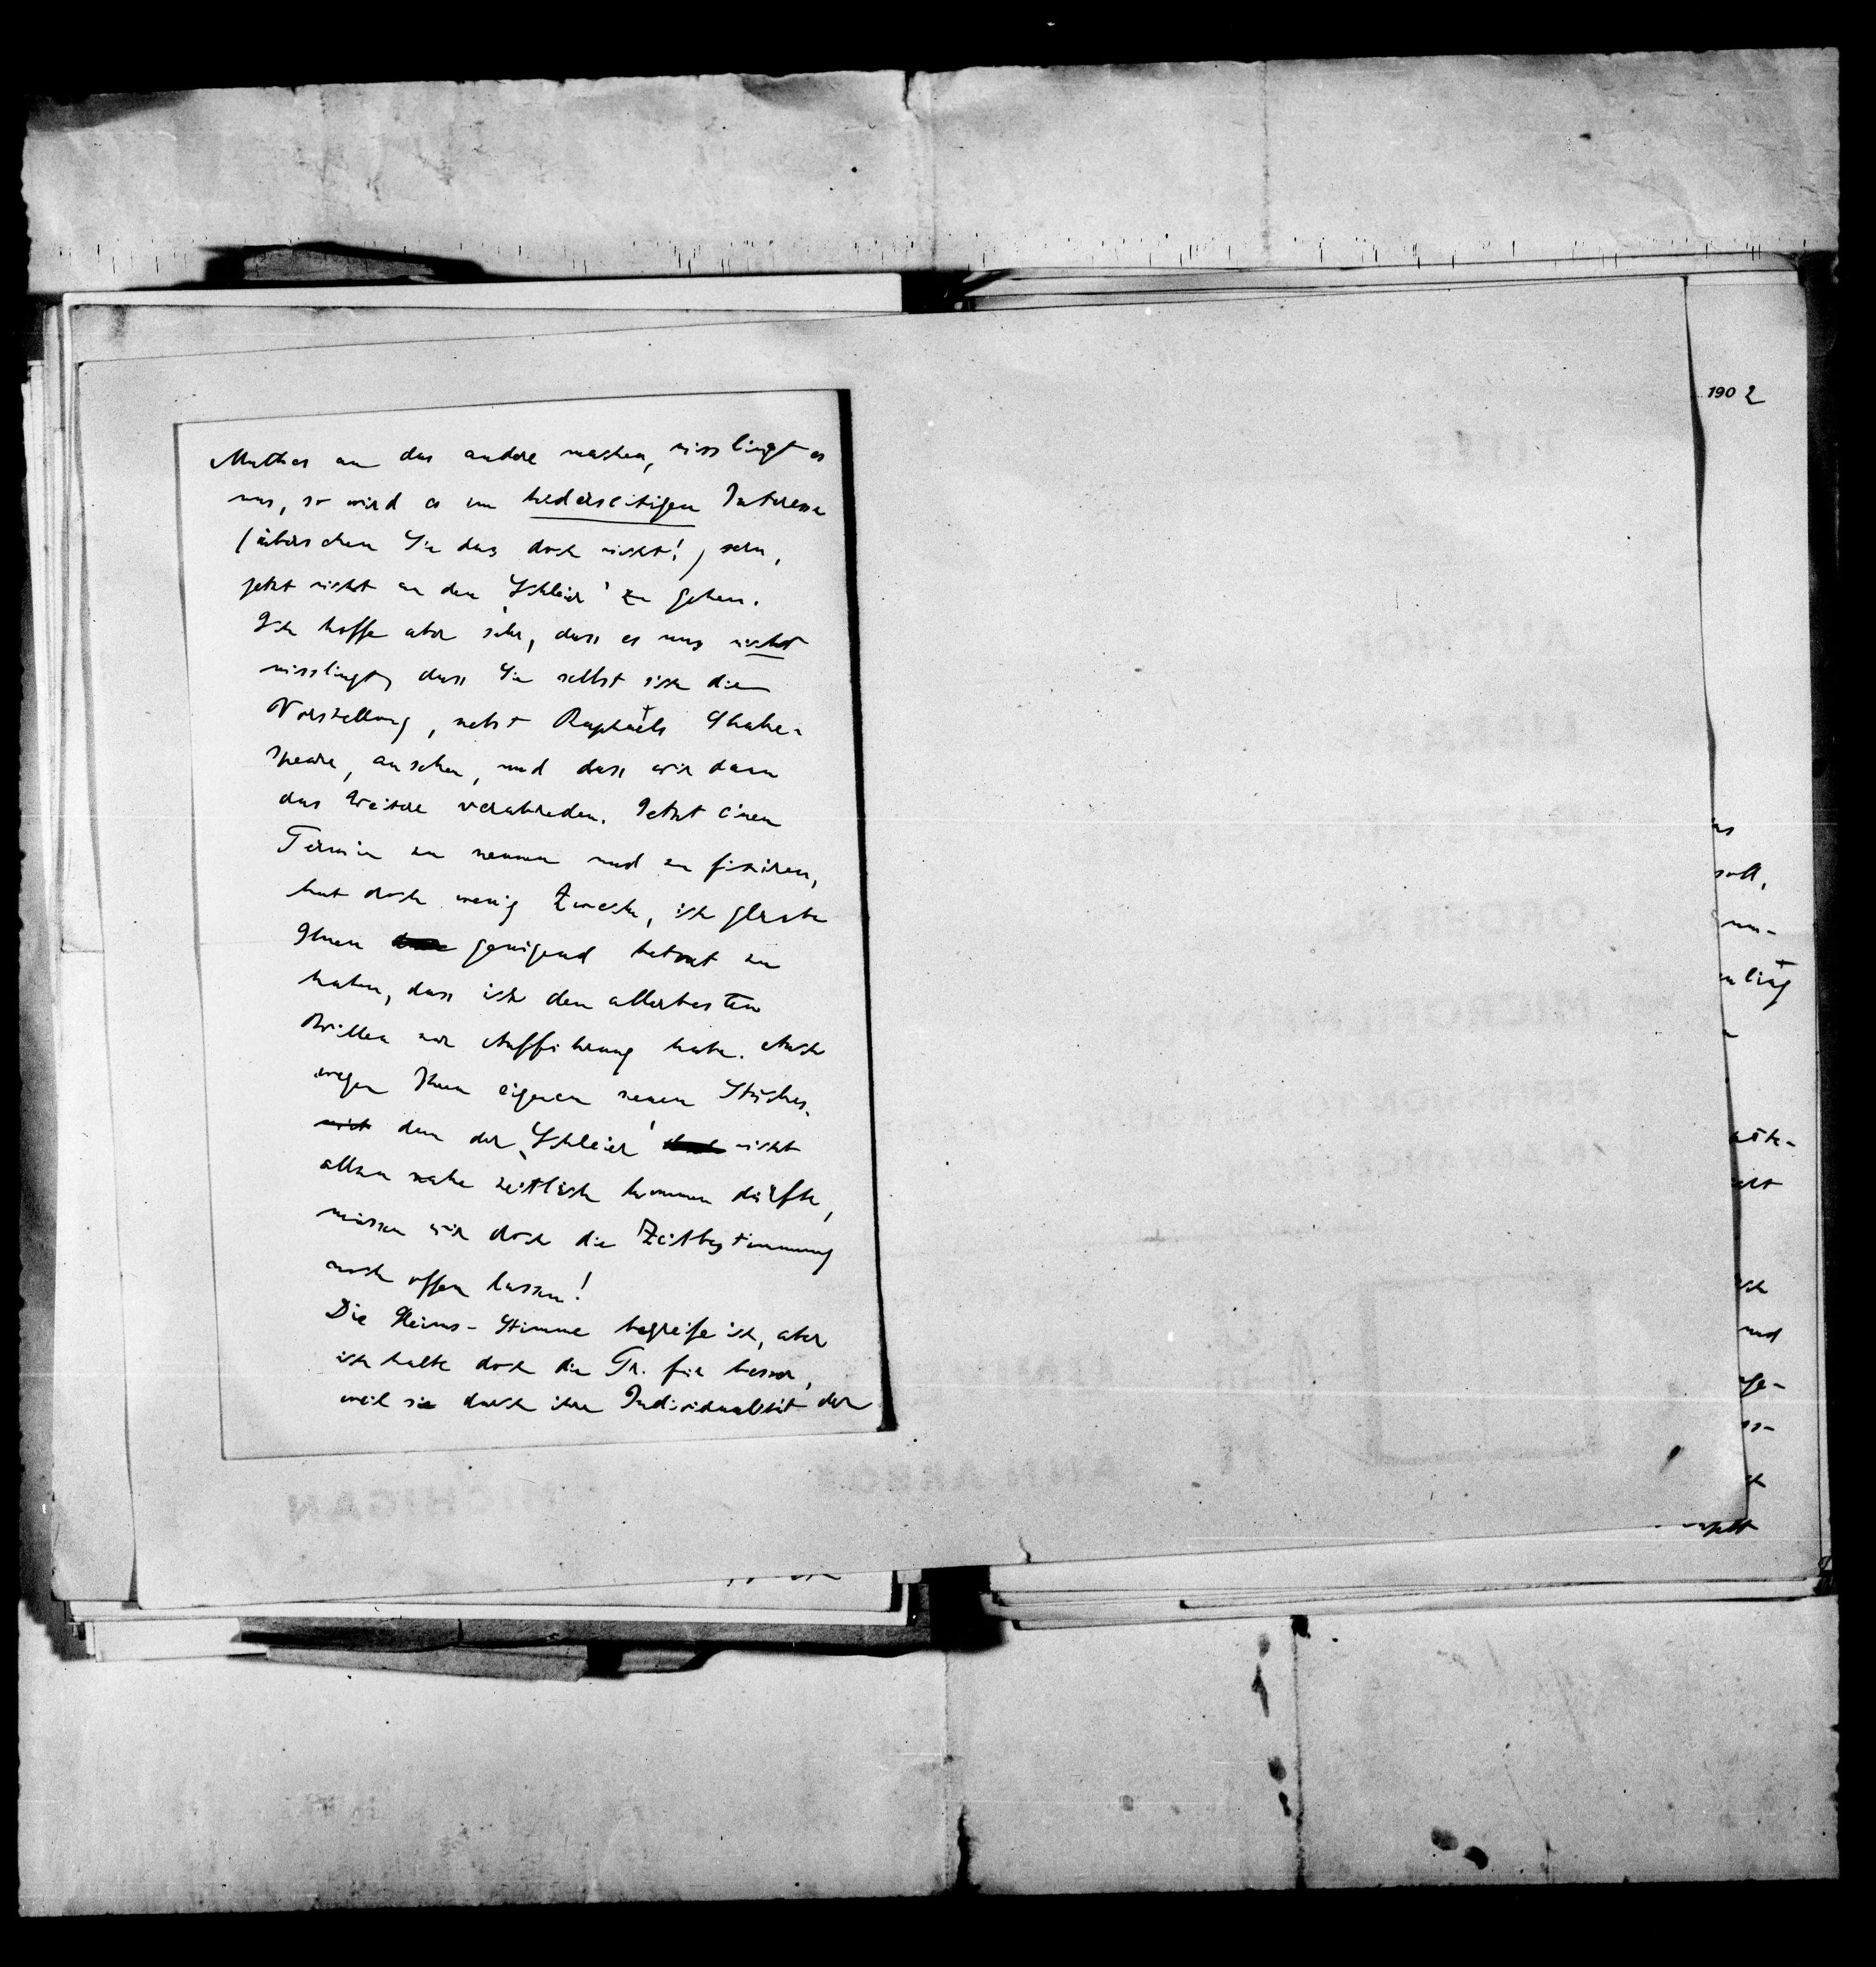 Muthes an das andere machen, misslingt es
uns, so wird es im beiderseitigen Interesse
(übersehen Sie das doch nicht!) sein,
jetzt nicht an den 'Schleier' zu gehen.
Ich hoffe aber sehr, dass es uns nicht
misslingt, dass Sie selbst sich die
Vorstellung, nebst Raphaels Shake-
speare, ansehen, und dass wir dann
das Weitere verabreden. Jetzt einen
Termin zu nennen und zu fixiren,
hat doch wenig Zweck, ich glaube
Ihnen genügend betont zu
haben, dass ich den allerbesten
Willen zur Aufführung habe. Auch
wegen Ihres eigenen neuen Stückes,
dem der 'Schleier' nicht
allzu nahe zeitlich kommen dürfte,
müssen wir doch die Zeitbestimmung
noch offen lassen!
Die Heims-Stimme begreife ich, aber
ich halte doch die Tr. für besser,
weil sie durch ihre Individualität der
1902
soll,
und